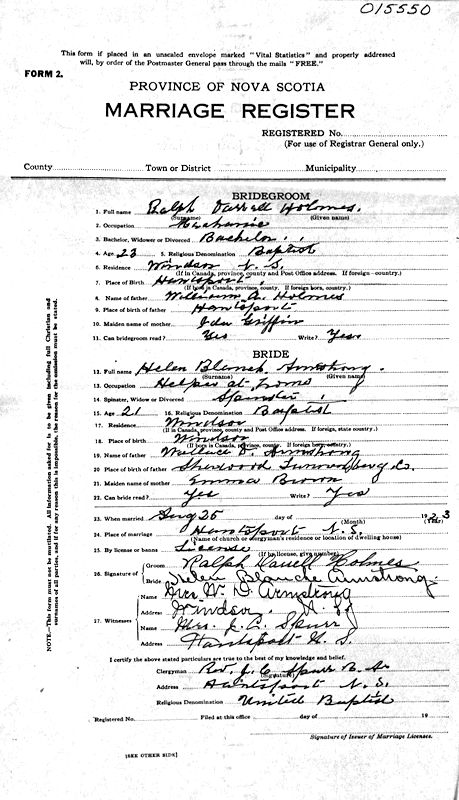 015550
This form if placed in an unsealed envelope marked "Vital Statistics" and properly addressed
will, by order of the Postmaster General pass through the mails "FREE."
FORM 2.
PROVINCE OF NOVA SCOTIA
MARRIAGE REGISTER
REGISTERED No.
(For use of Registrar General only.)
County Town or District Municipality
BRIDEGROOM
1. Full name Ralph Darrell Holmes.
(Surname) (Given name)
2. Occupation Mechanic
3. Bachelor, Widower or Divorced Bachelor
4. Age 23 5. Religious Denomination Baptist
6. Residence Windsor N. S.
(If in Canada, province, county and Post Office address. If foreign - country.)
7. Place of Birth Hantsport
(If born in Canada, province, county. If foreign born, country.)
8. Name of father William A. Holmes
9. Place of birth of father Hantsport
10. Maiden name of mother Ida Griffin
11. Can bridegroom read? Yes Write? Yes
BRIDE
12. Full name Helen Blanch Armstrong.
(Surname) (Given name)
13. Occupation Helper at home
14. Spinster, Widow or Divorced Spinster
15. Age 21 16. Religious Denomination Baptist
17. Residence Windsor
(If in Canada, province, county and Post Office address. If foreign, state country.)
18. Place of birth Windsor
(If born in Canada, province, county. If foreign born, country.)
19. Name of father Wallace D. Armstrong
20. Place of birth of father Sherwood Lunenburg Co.
21. Maiden name of mother Emma Brown
22. Can bride read? Yes Write? Yes
23. When married Aug 25 day of 1923
(Month) (Year)
24. Place of marriage Hantsport N. S.
(Name of church or clergyman's residence or location of dwelling house)
25. By license or banns License
(If by license, give number)
26. Signature of Groom Ralph Darrell Holmes
Bride Helen Blanche Armstrong.
27. Witnesses Name Mrs. W. D. Armstrong
Address Windsor, N. S.
Name Mrs. J. C. Spurr
Address Hantsport N. S.
I certify the above stated particulars are true to the best of my knowledge and belief.
Clergyman Rev. J. C. Spurr
(Signature)
Address Hantsport N. S.
Religious Denomination United Baptist
Registered No. Filed at this office day of 19
Signature of Issuer of Marriage Licenses.
[SEE OTHER SIDE]
NOTE.—This form must not be mutilated. All information asked for is to be given including full Christian and
surnames of all parties, and if for any reason this is impossible, the reason for the omission must be stated.